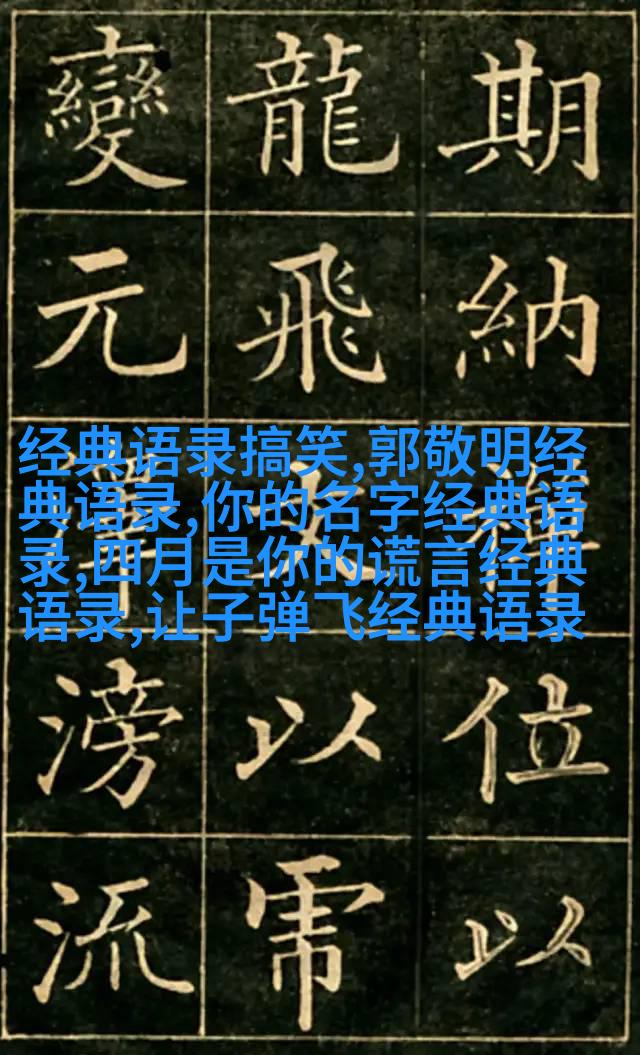 期納禪位以
龍飛文以
變元澤滂流
经典语录搞笑,郭敬明经
典语录,你的名字经典语
录,四月是你的谎言经典
语录,让子弹飞经典语录